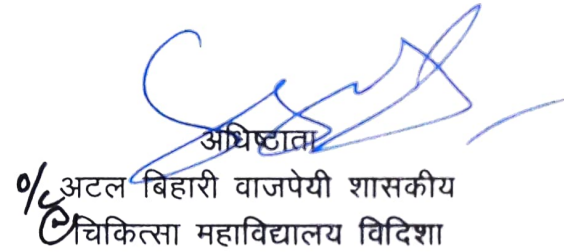 अधिष्ठाता
अटल बिहारी वाजपेयी शासकीय
चिकित्सा महाविद्यालय विदिशा